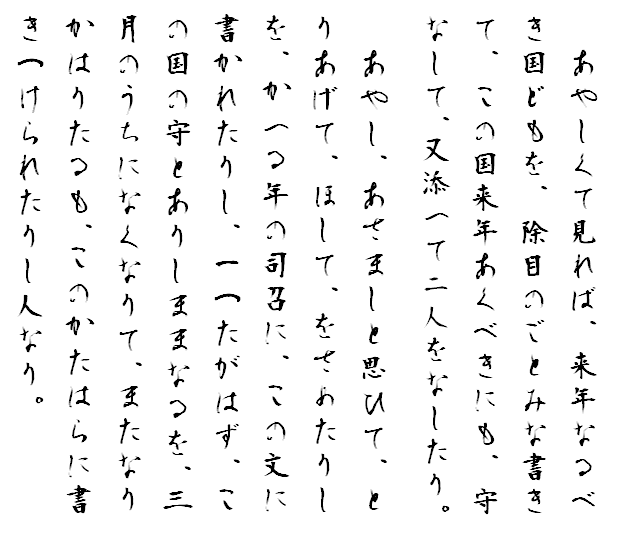 あやしくて見れば、来年なるべ
き国どもを、除目のごとみな書き
て、この国来年あくべきにも、守
なして、又添へて二人をなしたり。
あやし、あさましと思ひて、と
りあげて、ほして、をさめたりし
を、かへる年の司召に、この文に
書かれたりし、一つたがはず、こ
の国の守とありしままなるを、三
月のうちになくなりて、またなり
かはりたるも、このかたはらに書
きつけられたりし人なり。